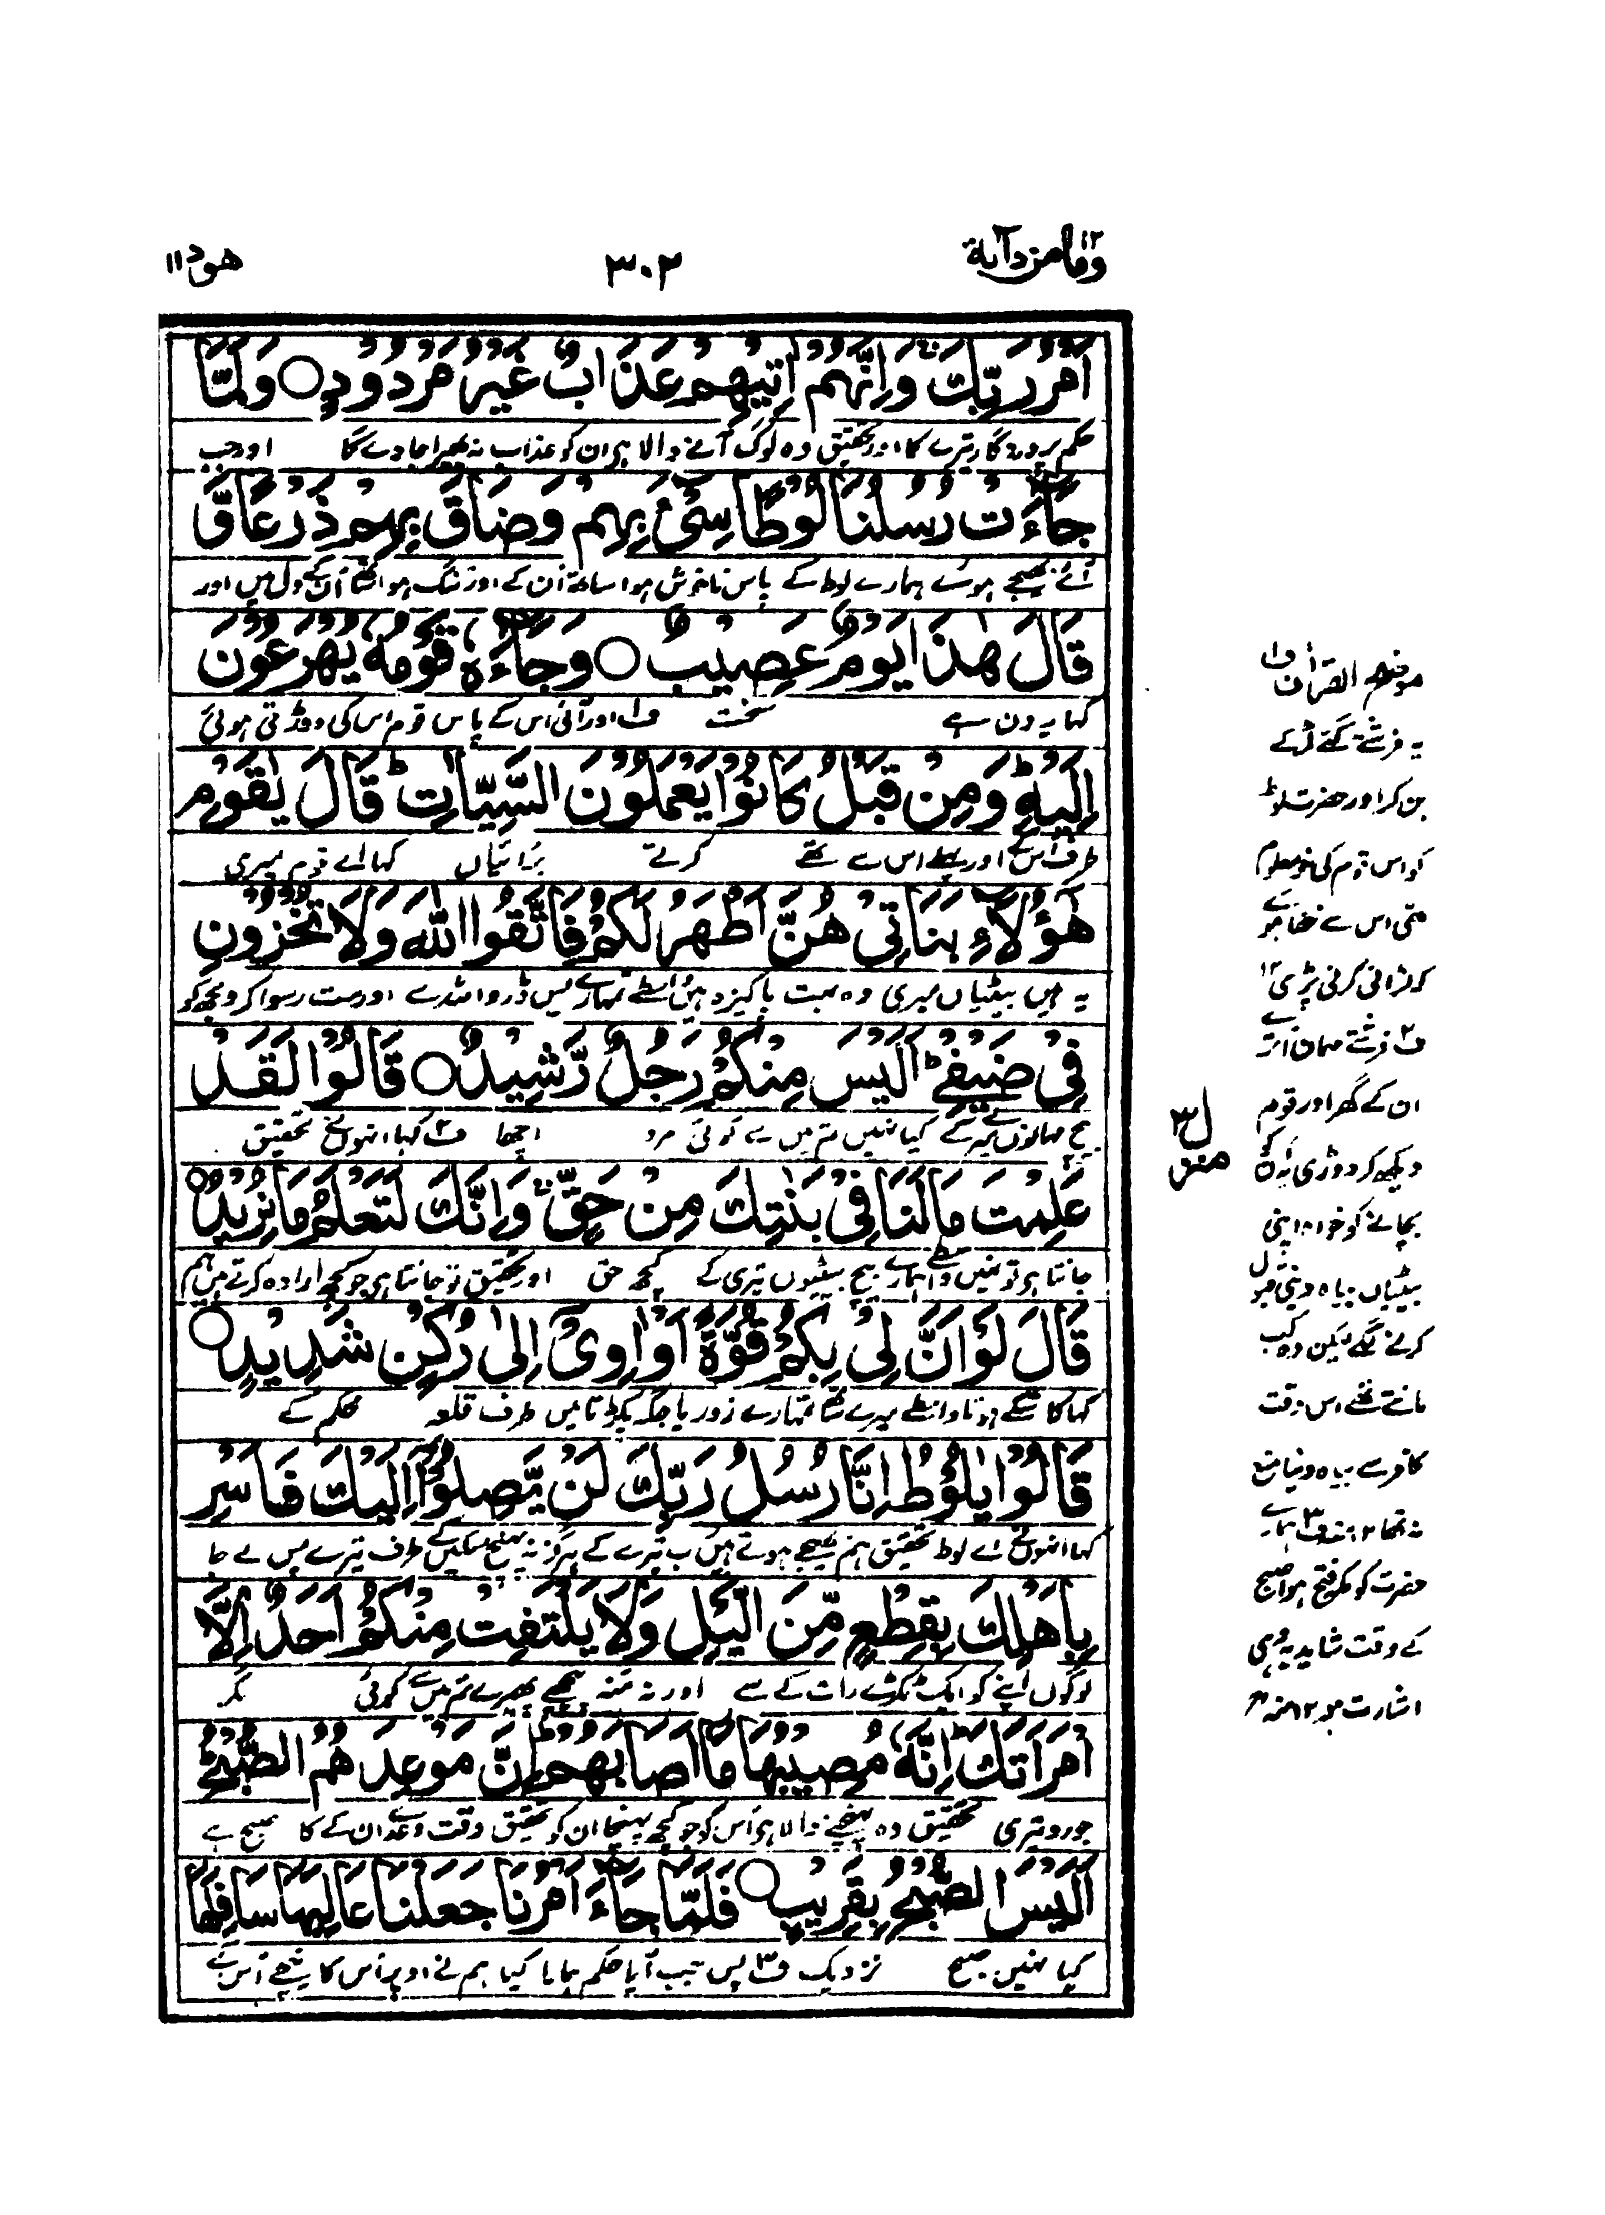 وما من دآبة ١٢
٣٠٢
هود ١١
اَمْرُ رَبِّكَ وَاِنَّهُمْ اٰتِيْهِمْ عَذَابٌ غَيْرُ مَرْدُوْدٍ ○ وَلَمَّا
حکم پروردگار تیرے کا اور تحقیق وہ لوگ آنے والا ہی ان کو عذاب نہ پھیرا جاوے گا اور جب
جَآءَتْ رُسُلُنَا لُوْطًا سِيْٓءَ بِهِمْ وَضَاقَ بِهِمْ ذَرْعًا وَّ
آئے بھیجے ہوئے ہمارے لوط کے پاس ناخوش ہوا ساتھ ان کے اور تنگ ہوا ان کے دل میں اور
قَالَ هٰذَا يَوْمٌ عَصِيْبٌ ○ وَجَآءَهٗ قَوْمُهٗ يُهْرَعُوْنَ
کہا یہ دن ہے سخت ف۱ اور آئی اس کے پاس قوم اس کی دوڑتی ہوئی
اِلَيْهِ ؕ وَمِنْ قَبْلُ كَانُوْا يَعْمَلُوْنَ السَّيِّاٰتِ ؕ قَالَ يٰقَوْمِ
طرف اس کے اور پہلے اس سے تھے کرتے برائیاں کہا اے قوم میری
هٰٓؤُلَآءِ بَنَاتِيْ هُنَّ اَطْهَرُ لَكُمْ فَاتَّقُوا اللّٰهَ وَلَا تُخْزُوْنِ
یہ ہیں بیٹیاں میری وہ بہت پاکیزہ ہیں واسطے تمہارے پس ڈرو اللہ سے اور مت رسوا کرو مجھ کو
فِيْ ضَيْفِيْ ؕ اَلَيْسَ مِنْكُمْ رَجُلٌ رَّشِيْدٌ ○ قَالُوْا لَقَدْ
بیچ مہمانوں میرے کے کیا نہیں تم میں سے کوئی مرد اچھا ف۲ کہا انہوں نے تحقیق
عَلِمْتَ مَا لَنَا فِيْ بَنٰتِكَ مِنْ حَقٍّ ۚ وَاِنَّكَ لَتَعْلَمُ مَا نُرِيْدُ ○
جانتا ہی تو نہیں واسطے ہمارے بیچ بیٹیوں تیری کے کچھ حق اور تحقیق تو جانتا ہی جو کچھ ارادہ کرتے ہیں ہم
قَالَ لَوْ اَنَّ لِيْ بِكُمْ قُوَّةً اَوْ اٰوِيْٓ اِلٰى رُكْنٍ شَدِيْدٍ ○
کہا کاشکے ہوتا واسطے میرے ساتھ تمہارے زور یا جگہ پکڑتا میں طرف قلعہ محکم کے
قَالُوْا يٰلُوْطُ اِنَّا رُسُلُ رَبِّكَ لَنْ يَّصِلُوْٓا اِلَيْكَ فَاَسْرِ
کہا انہوں نے اے لوط تحقیق ہم بھیجے ہوئے ہیں رب تیرے کے ہرگز نہ پہنچ سکیں گے طرف تیرے پس لے جا
بِاَهْلِكَ بِقِطْعٍ مِّنَ الَّيْلِ وَلَا يَلْتَفِتْ مِنْكُمْ اَحَدٌ اِلَّا
لوگوں اپنے کو ایک ٹکڑے رات کے سے اور نہ منہ پیچھے پھیرے تم میں سے کوئی مگر
امْرَاَتَكَ ؕ اِنَّهٗ مُصِيْبُهَا مَآ اَصَابَهُمْ ؕ اِنَّ مَوْعِدَهُمُ الصُّبْحُ ؕ
جورو تیری تحقیق وہ پہنچنے والا ہی اس کو جو کچھ پہنچا ان کو تحقیق وقت وعدہ ان کے کا صبح ہے
اَلَيْسَ الصُّبْحُ بِقَرِيْبٍ ○ فَلَمَّا جَآءَ اَمْرُنَا جَعَلْنَا عَالِيَهَا سَافِلَهَا
کیا نہیں صبح نزدیک ف۳ پس جب آیا حکم ہمارا کیا ہم نے اوپر اس کا نیچے اس کے
موضح القرآن ف۱
یہ فرشتے گئے لڑکے
بن کر اور حضرت لوط
کو اس قوم کی خو معلوم
تھی اس سے خفا ہوئے
کہ لڑائی کرنی پڑی ۱۲
ف۲ فرشتے مہمان اترے
ان کے گھر اور قوم
دیکھ کر دوڑی یہ ان کو
بچانے کو خواہ اپنی
بیٹیاں بیاہ دینی قبول
کرنے لگے لیکن وہ کب
مانتے تھے اس وقت
کافر سے بیاہ دینا منع
نہ تھا ۱۲ منہ ف۳ ہمارے
حضرت کو مکہ فتح ہوا صبح
کے وقت شاید یہ وہی
اشارت ہو ۱۲ منہ
منزل ٣